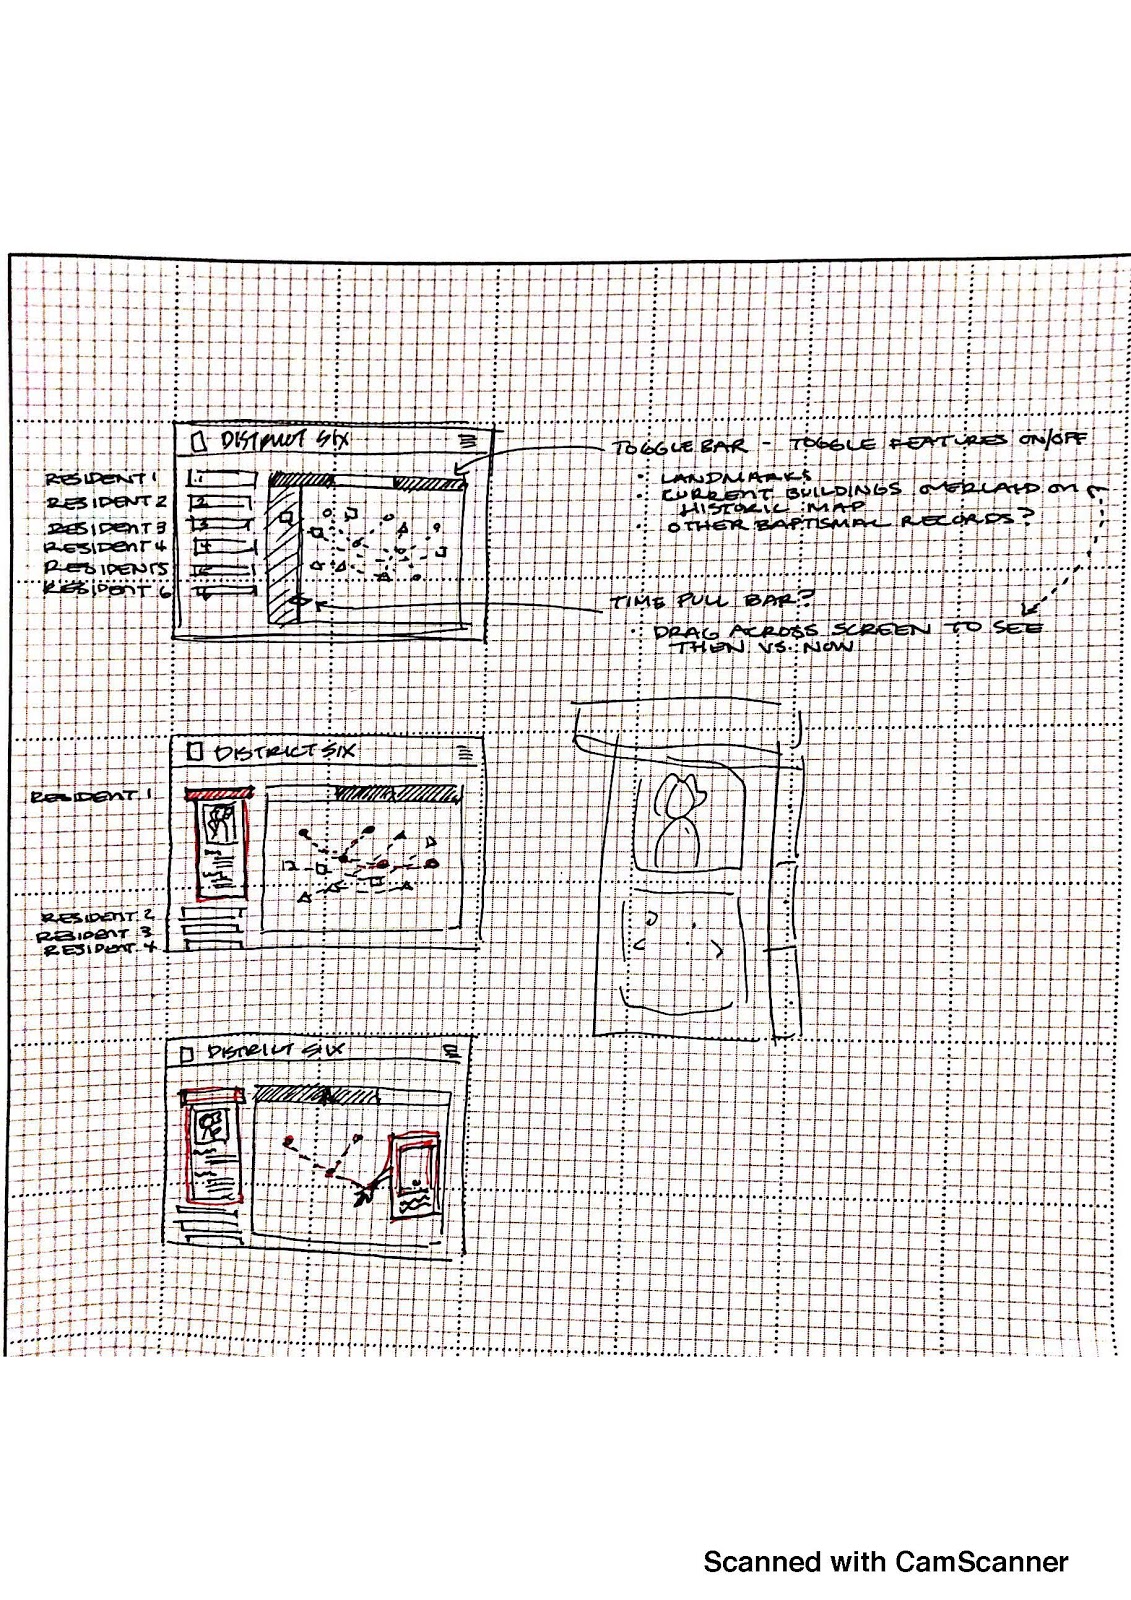 DISTRICT SIX
RESIDENT 1
RESIDENT 2
RESIDENT 3
RESIDENT 4
RESIDENT 5
RESIDENT 6
1
2
3
4
TOGGLE BAR - TOGGLE FEATURES ON/OFF
• LANDMARKS
• CURRENT BUILDINGS OVERLAID ON
HISTORIC MAP
• OTHER BAPTISMAL RECORDS?
TIME PULL BAR?
• DRAG ACROSS SCREEN TO SEE
THEN VS. NOW
DISTRICT SIX
RESIDENT 1
RESIDENT 2
RESIDENT 3
RESIDENT 4
DISTRICT SIX
Scanned with CamScanner